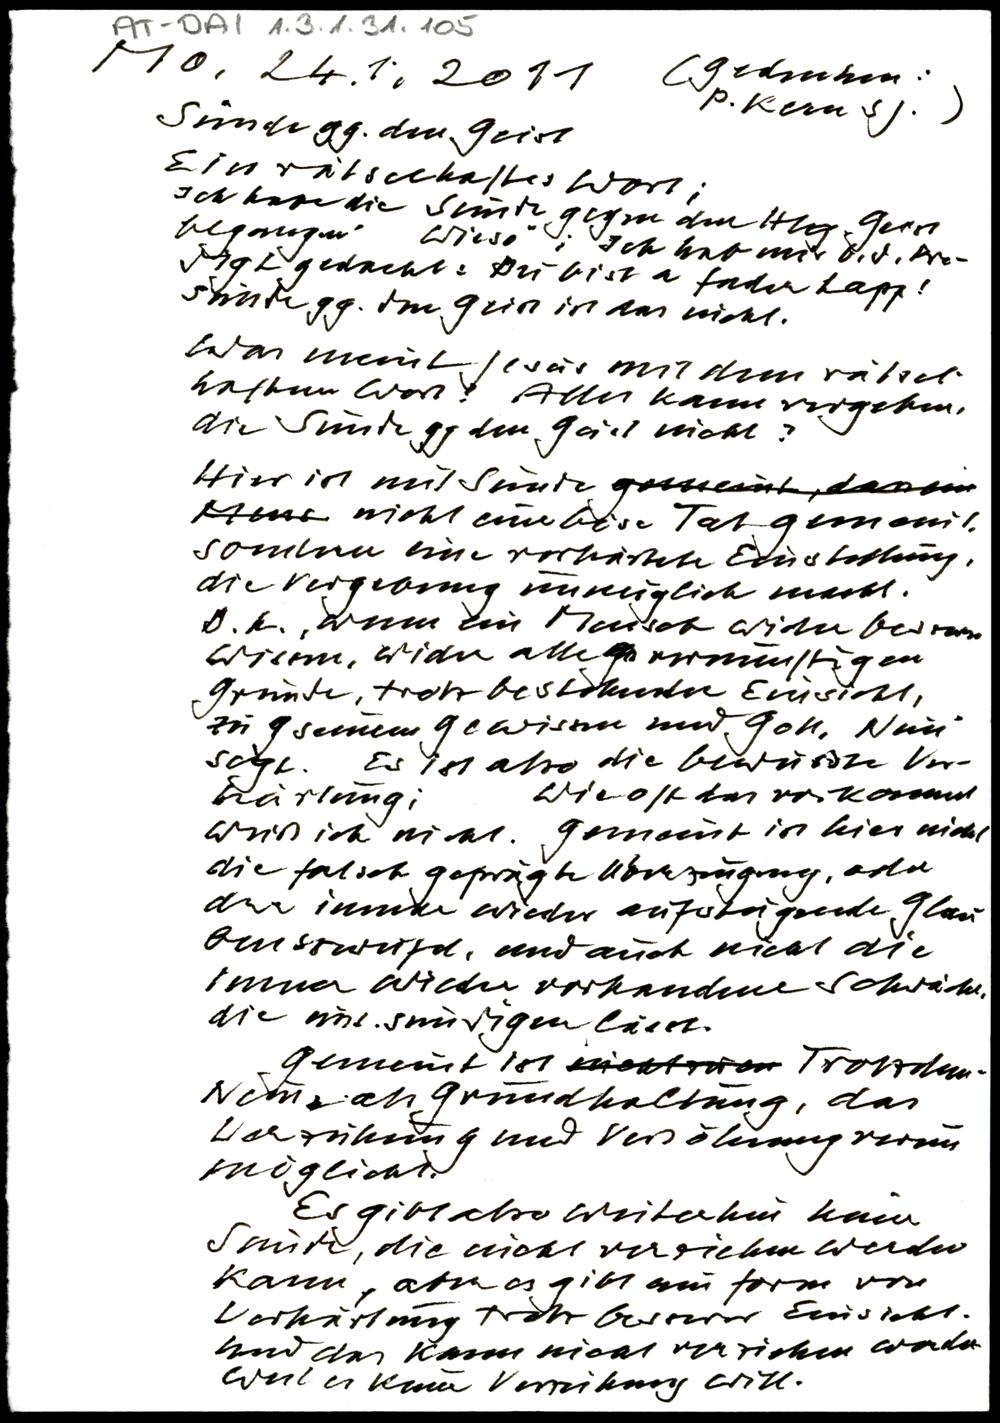 AT-DAI 1.3.1.31.105
Mo, 24.1.2011 (Gedenken:
P. Kern SJ.)
Sünde gg. den Geist
Ein rätselhaftes Wort;
Ich habe die Sünde gegen den Hlg. Geist
begangen" Wieso"; Ich hab mir b.d. Pre-
digt gedacht: Du bist a fader Lapp!
Sünde gg. den Geist ist das nicht.
Was meint Jesus mit dem rätsel-
haften Wort? Alles kann vergeben,
die Sünde gg den Geist nicht?
Hier ist mit Sünde gemeint, dass ein
Mens nicht eine böse Tat gemeint,
sondern eine verhärtete Einstellung,
die Vergebung unmöglich macht.
D.h., wenn ein Mensch wider besseren
Wissen, wider alle vernünftigen
Gründe, trotz bestehender Einsicht,
zu seinem Gewissen und Gott, Nein
sagt. Es ist also die bewusste Ver-
härtung; Wie oft das vorkommt
weiß ich nicht. Gemeint ist hier nicht
die falsch geprägte Überzeugung, oder
der immer wieder aufsteigende Glau
benszweifel, und auch nicht die
immer wieder vorhandene Schwäche,
die uns sündigen lässt.
Gemeint ist Trotzdem-
Nein, als Grundhaltung, das
Verzeihung und Versöhnung verun
möglicht.
Es gibt also weiterhin keine
Sünde, die nicht verziehen werden
kann, aber es gibt ein form von
Verhärtung trotz besserer Einsicht.
und das kann nicht verziehen werden
weil es keine Verzeihung will.